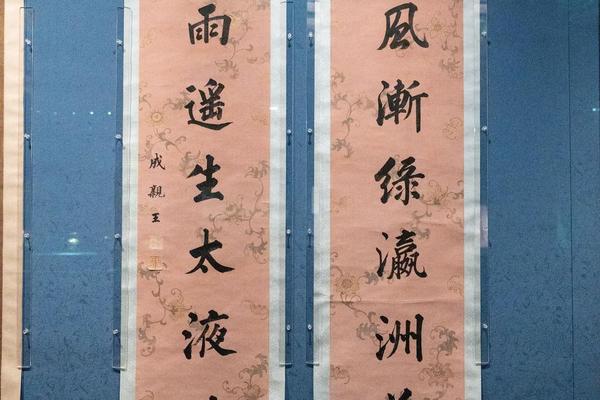 風漸綠瀛洲
雨遥生太液
成親王